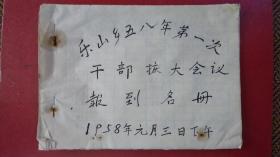 乐山乡五八年第一次
干部扩大会议
報到名冊
1958年元月三日下午